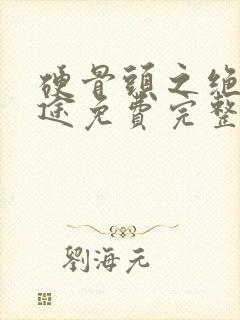 硬骨頭之絕
途免費完整
劉海元